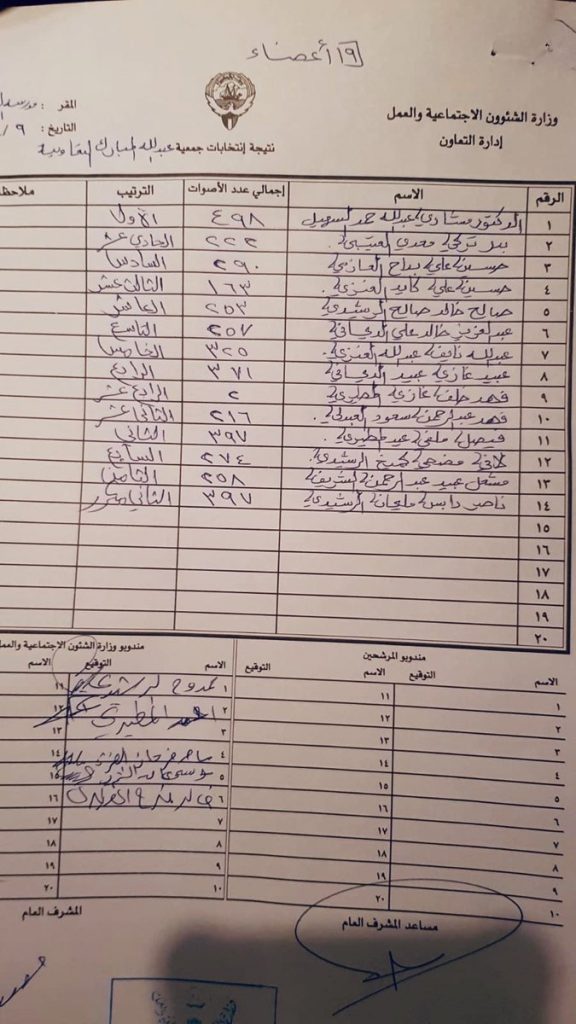 ٩ أعضاء
وزارة الشئوون الاجتماعية والعمل
إدارة التعاون
المقر :
التاريخ : ٩ /
نتيجة إنتخابات جمعية عبدالله المبارك التعاونية
الرقم الاسم إجمالي عدد الأصوات الترتيب ملاحظ
١ الدكتور مشاري عبدالله حمد السهيل ٤٩٨ الأول
٢ بدر تركي معدي العتيبي ٢٢٢ الحادي عشر
٣ حسين علي بداح العازمي ٢٩٠ السادس
٤ حسين علي العنزي ١٦٣ الثالث عشر
٥ صالح خالد صالح الرشيدي ٢٥٣ العاشر
٦ عبدالعزيز خالد علي الديحاني ٢٥٧ التاسع
٧ عبدالله نايف عبدالله العنزي ٣٢٥ الخامس
٨ عبيد غازي عبيد الديحاني ٣٧١ الرابع
٩ فهد خلف غازي المطيري ٢ الرابع عشر
١٠ فهد عبدالرحمن سعود العبدلي ٢١٦ الثاني عشر
١١ فيصل ملفي عيد المطيري ٣٩٧ الثاني
١٢ لافي مضحي الرشيدي ٢٧٤ السابع
١٣ مشعل عبيد عبدالرحمن الشريف ٢٥٨ الثامن
١٤ ناصر دابس الرشيدي ٣٩٧ الثاني مكرر
١٥
١٦
١٧
١٨
١٩
٢٠
مندوبو المرشحين
مندوبو وزارة الشئون الاجتماعية والعمل
الاسم التوقيع الاسم التوقيع
الاسم التوقيع الاسم
١ ١١ ١ ممدوح الرشيدي ١١
٢ ١٢ ٢ احمد المطيري ١٢
٣ ١٣ ٣ ١٣
٤ ١٤ ٤ ١٤
٥ ١٥ ٥ ١٥
٦ ١٦ ٦ ١٦
٧ ١٧ ٧ ١٧
٨ ١٨ ٨ ١٨
٩ ١٩ ٩ ١٩
١٠ ٢٠ ١٠ ٢٠
مساعد المشرف العام
المشرف العام